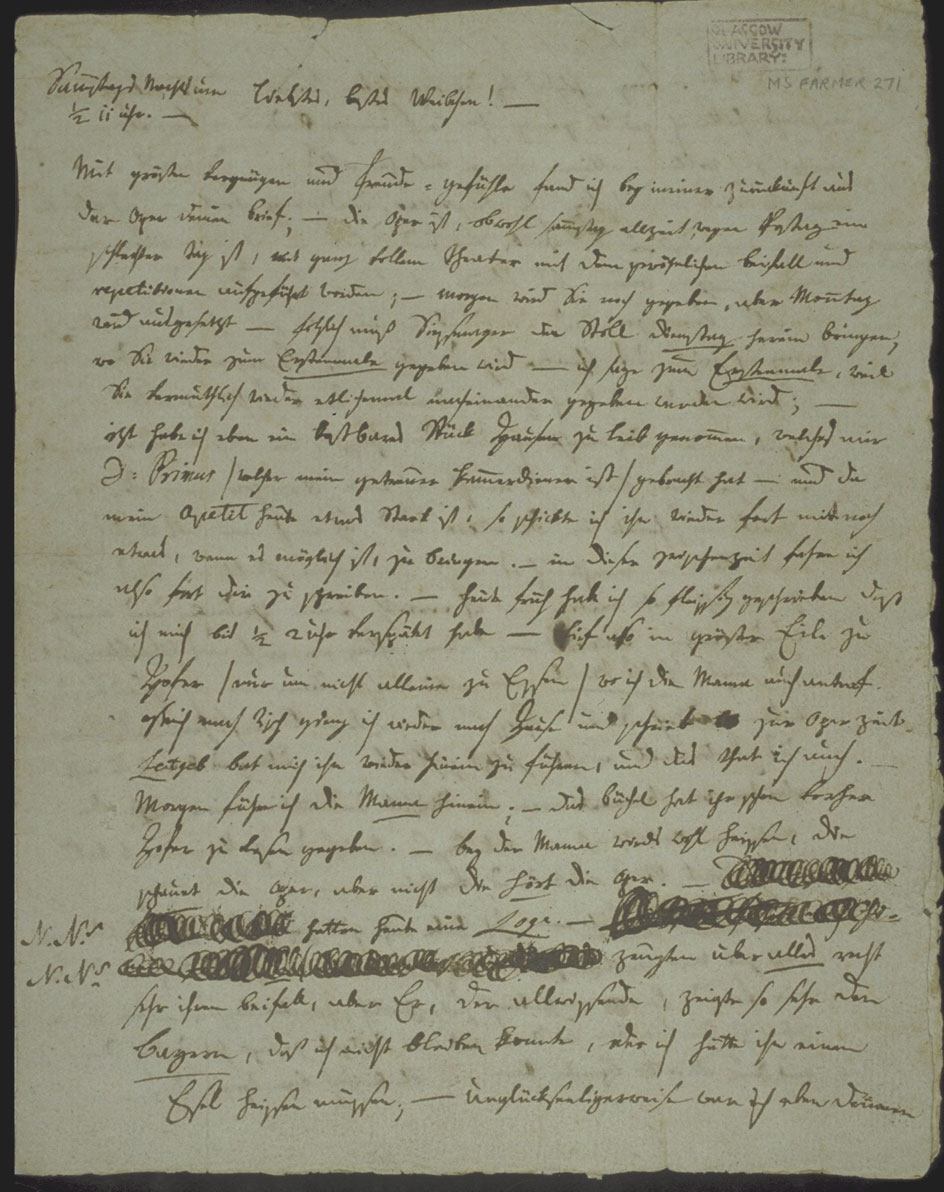 GLASGOW
UNIVERSITY
LIBRARY:
MS FARMER 271
Samstags Nachts um
½ 11 uhr. —
liebstes, bestes Weibchen! —
Mit grösten Vergnügen und Freude-gefühle fand ich bey meiner zurückkunft aus
der Oper deinen brief; — die Oper ist, obwohl Samstag allzeit wegen Postag ein
schlechter Tag ist, mit ganz vollem Theater mit dem gewöhnlichen beifall und
repetitionen aufgeführt worden; — morgen wird sie noch gegeben, aber Montag
wird ausgesetzt — folglich muß Süssmayer den Stoll dienstag herein bringen,
wo Sie wieder zum Erstenmale gegeben wird — ich sage zum Erstenmale, weil
Sie vermuthlich wieder etlichemal nacheinander gegeben werden wird; —
izt habe ich eben ein kostbares Stück Hausen zu leib genommen, welches mir
D: Primus /welcher mein getreuer kammerdiener ist/ gebracht hat — und da
mein apetit heute etwas Stark ist, so schickte ich ihn wieder fort mir noch
etwas, wenn es möglich ist, zu bringen. — in dieser zwischenzeit fahre ich
also fort dir zu schreiben. — heute früh habe ich so fleissig geschrieben daß
ich mich bis ½ 2 uhr verspätet habe — lief also in gröster Eile zu
Hofer /nur um nicht alleine zu Essen/ wo ich die Mama auch antraf.
gleich nach Tisch gieng ich wieder nach Hause und schrieb bis zur Oper zeit.
Leitgeb bat mich ihn wieder hinein zu führen, und das that ich auch. —
Morgen führe ich die Mama hinein; — das büchel hat ihr schon vorher
Hofer zu lesen gegeben. — bey der Mama wirds wohl heissen, die
schauet die Oper, aber nicht die hört die Oper. —
N.N.s hatten heute eine Loge. —
N.N.s zeugten über alles recht
sehr ihren beifall, aber Er, der allwissende, zeigte so sehr den
bayern, daß ich nicht bleiben konnte, oder ich hätte ihn einen
Esel heissen müssen; — Unglückseeligerweise war ich eben drinnen